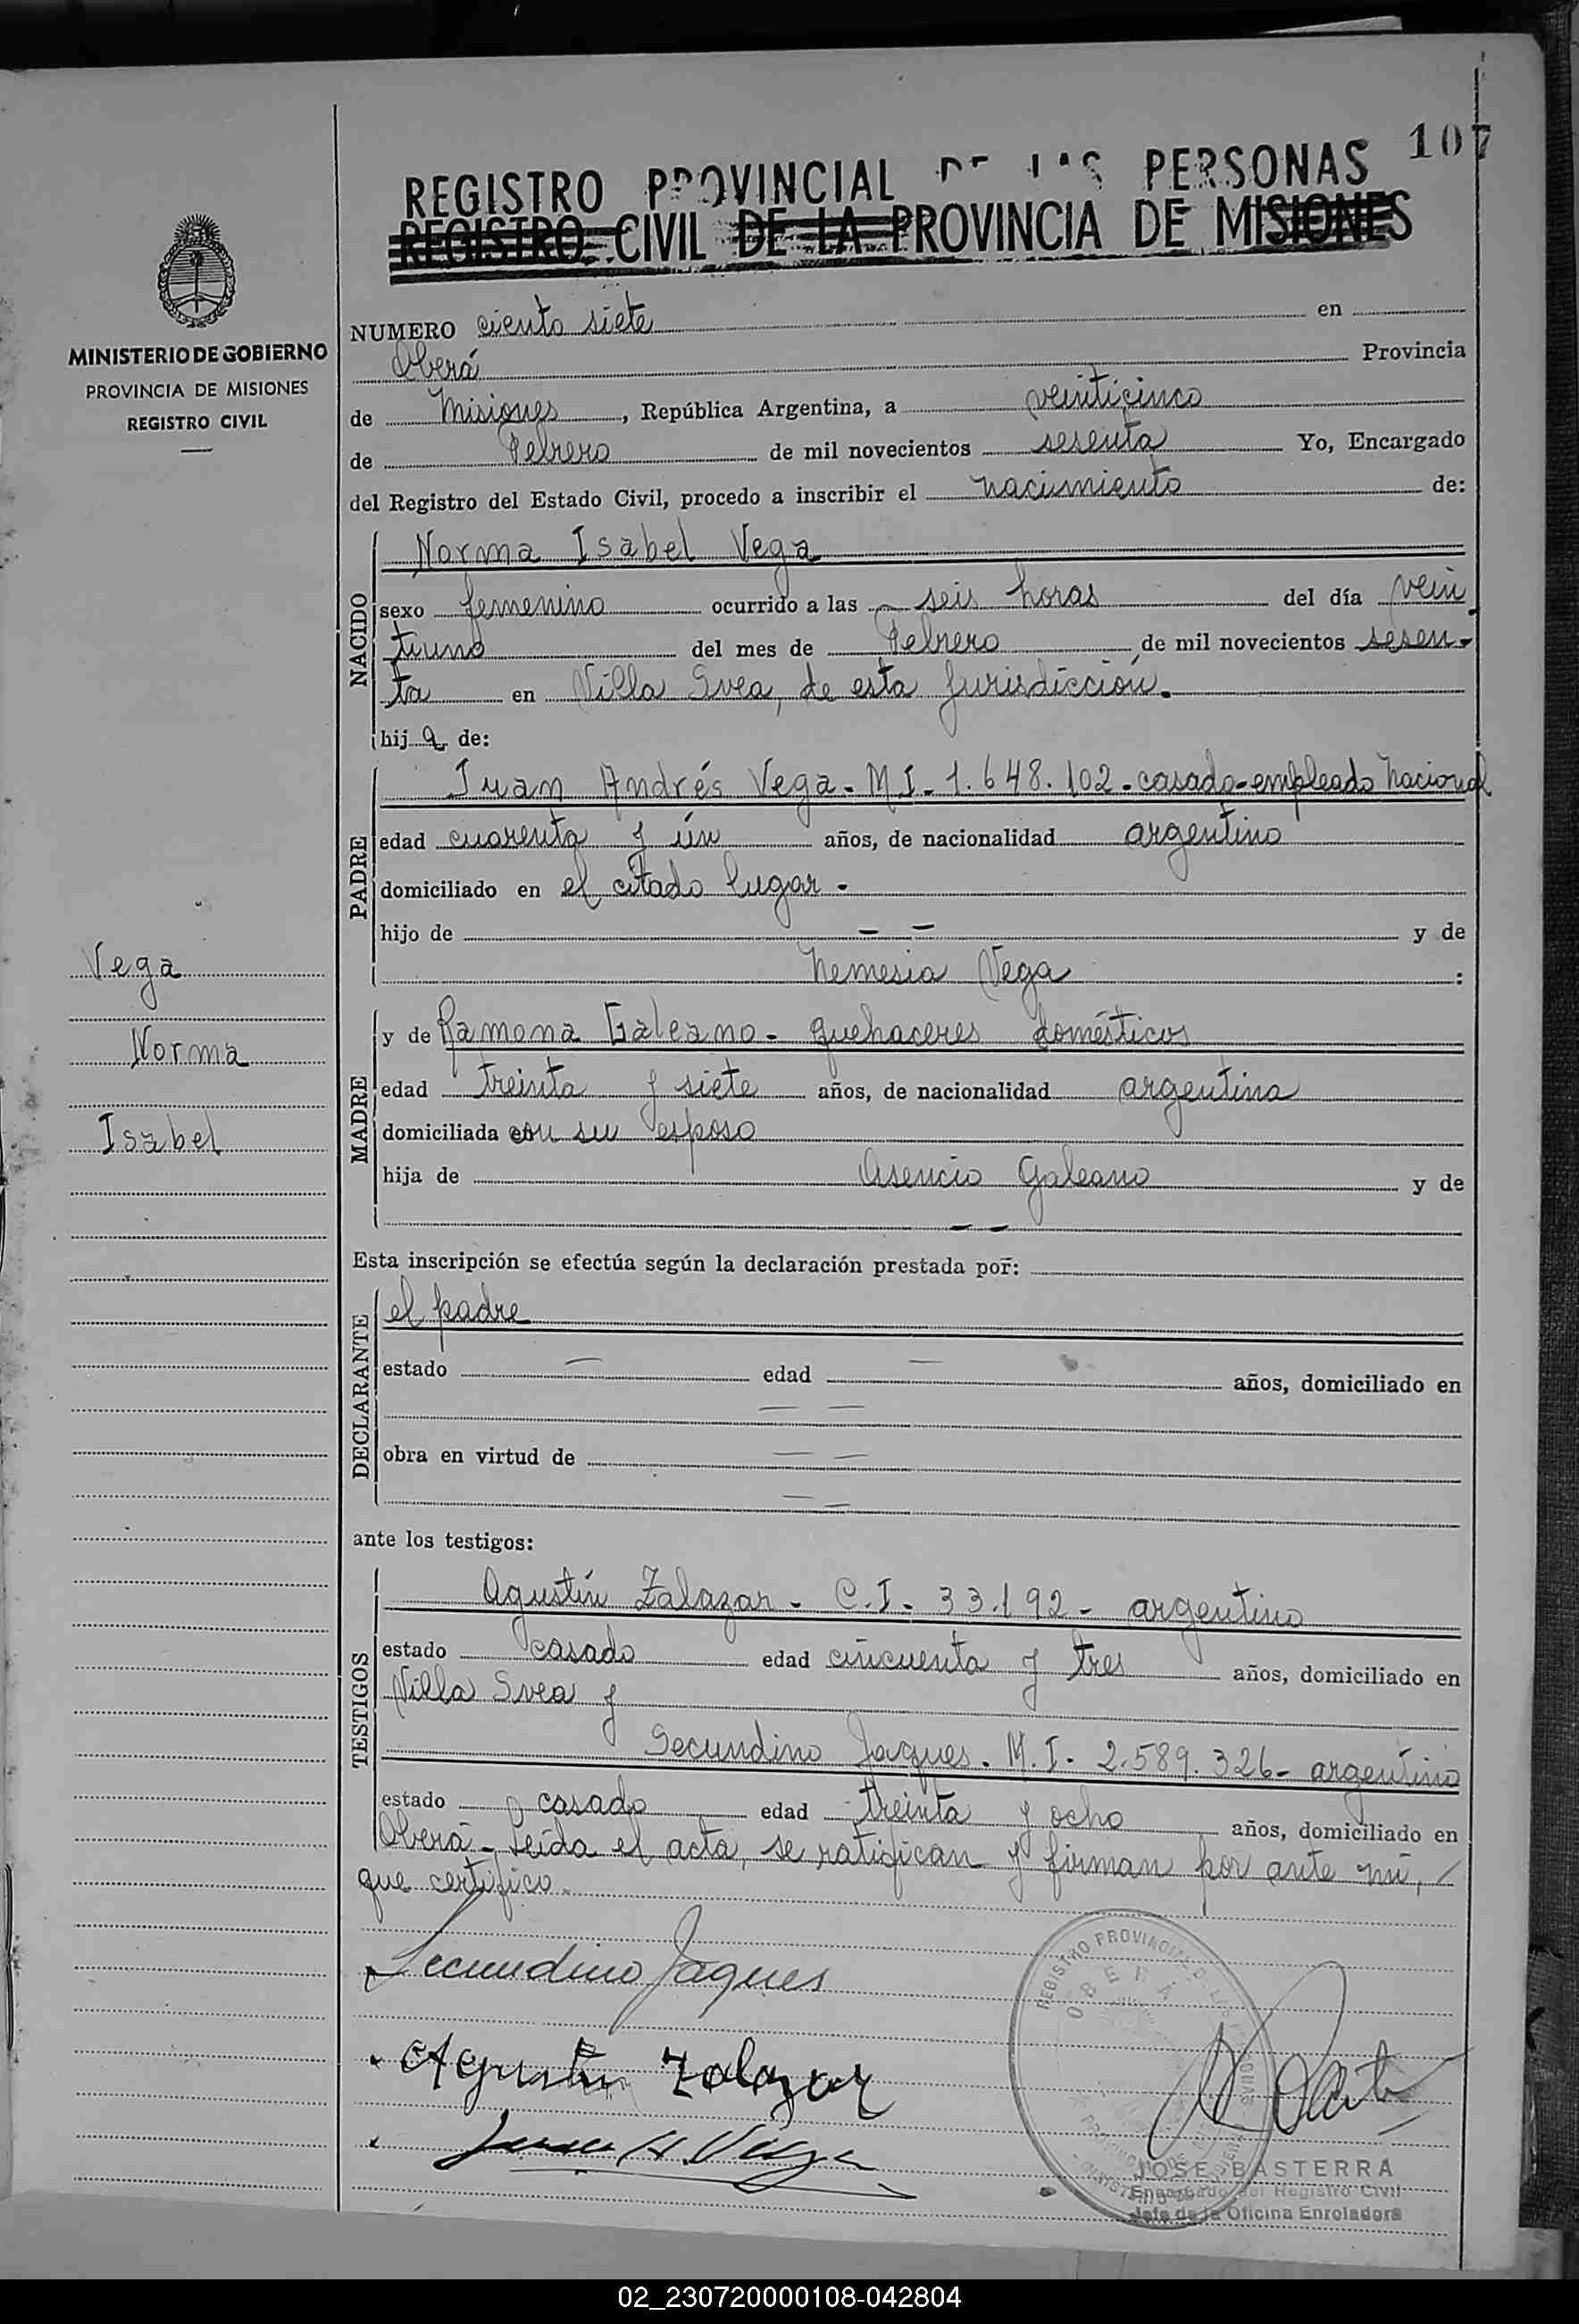 107
REGISTRO PROVINCIAL DE LAS PERSONAS
REGISTRO CIVIL DE LA PROVINCIA DE MISIONES
MINISTERIO DE GOBIERNO
PROVINCIA DE MISIONES
REGISTRO CIVIL
NUMERO ciento siete en
Oberá Provincia
de Misiones, República Argentina, a veinticinco
de Febrero de mil novecientos sesenta Yo, Encargado
del Registro del Estado Civil, procedo a inscribir el nacimiento de:
NACIDO
Norma Isabel Vega
sexo femenino ocurrido a las seis horas del día vein
tiuno del mes de Febrero de mil novecientos sesen-
ta en Villa Svea, de esta Jurisdicción.
hija de:
PADRE
Juan Andrés Vega - M.I. 1.648.102 - casado - empleado nacional
edad cuarenta y un años, de nacionalidad argentino
domiciliado en el citado lugar -
hijo de — — y de
Nemesia Vega :
Vega
Norma
Isabel
MADRE
y de Ramona Galeano - quehaceres domésticos
edad treinta y siete años, de nacionalidad argentina
domiciliada con su esposo
hija de Asencio Galeano y de
— —
Esta inscripción se efectúa según la declaración prestada por:
DECLARANTE
el padre
estado — edad — años, domiciliado en
— —
obra en virtud de — —
— —
ante los testigos:
TESTIGOS
Agustín Zalazar - C.I. 33.192 - argentino
estado casado edad cincuenta y tres años, domiciliado en
Villa Svea y
Secundino Jaques - M.I. 2.589.326 - argentino
estado casado edad treinta y ocho años, domiciliado en
Oberá - Leída el acta, se ratifican y firman por ante mí,
que certifico.
Secundino Jaques
Agustin Zalazar
Juan A. Vega
REGISTRO PROVINCIAL DE LAS PERSONAS
OBERÁ
JOSE BASTERRA
Encargado del Registro Civil
Jefe de la Oficina Enroladora
02_230720000108-042804